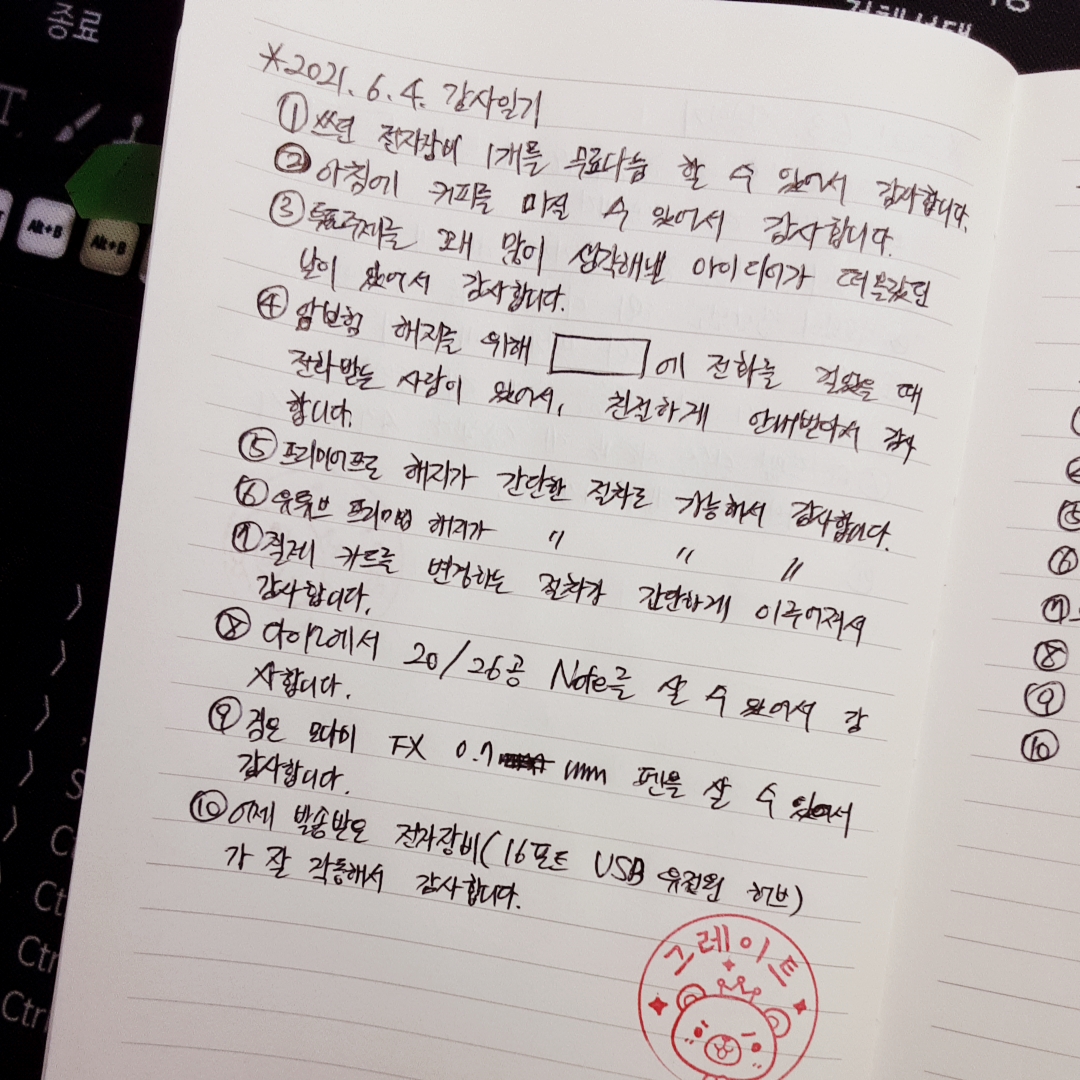 종료
Alt+B
Alt+B
*2021. 6. 4. 감사일기
① 쓰던 전자장비 1개를 무료나눔 할 수 있어서 감사합니다.
② 아침에 커피를 마실 수 있어서 감사합니다.
③ 투표주제를 꽤 많이 생각해낼 아이디어가 떠올랐던
날이 있어서 감사합니다.
④ 암보험 해지를 위해 에 전화를 걸었을 때
전화받는 사람이 있어서, 친절하게 안내받아서 감사
합니다.
⑤ 프리미어프로 해지가 간단한 절차로 가능해서 감사합니다.
⑥ 유튜브 프리미엄 해지가 〃 〃 〃
⑦ 결제 카드를 변경하는 절차가 간단하게 이루어져서
감사합니다.
⑧ 다이소에서 20/26공 Note를 살 수 있어서 감
사합니다.
⑨ 검은 모나미 FX 0.7 mm 펜을 살 수 있어서
감사합니다.
⑩ 어제 발송받은 전자장비(16포트 USB 유전원 허브)
가 잘 작동해서 감사합니다.
그레이트
⑤
⑥
⑦
⑧
⑨
⑩
Ctr
Ctrl